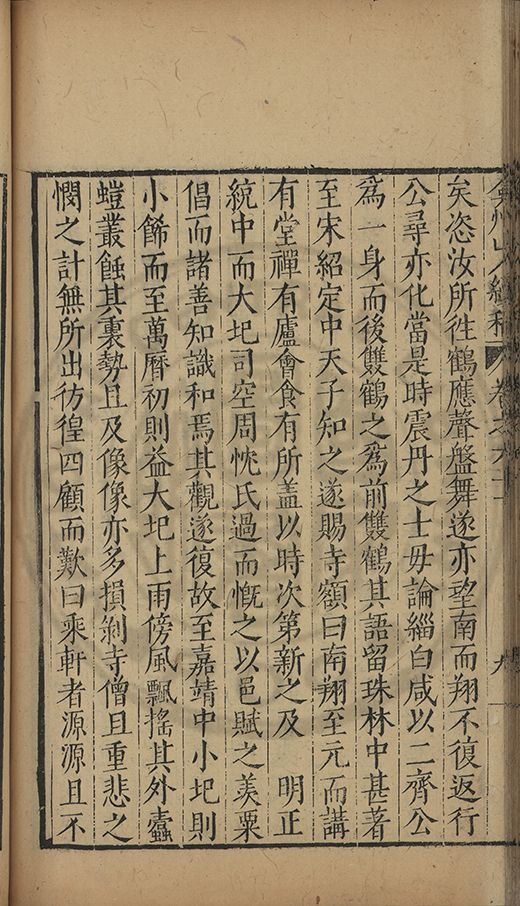 弇州山人續稿 卷之六十一 九
矣恣汝所徃鶴應聲盤舞遂亦望南而翔不復返行
公尋亦化當是時震丹之士毋論緇白咸以二齊公
爲一身而後雙鶴之爲前雙鶴其語留珠林中甚著
至宋紹定中天子知之遂賜寺額曰南翔至元而講
有堂禪有廬會食有所盖以時次第新之及 明正
統中而大圯司空周忱氏過而慨之以邑賦之羡粟
倡而諸善知識和焉其觀遂復故至嘉靖中小圯則
小餙而至萬曆初則益大圯上雨傍風飄搖其外蠧
螘叢蝕其裏勢且及像像亦多損剝寺僧且重悲之
憫之計無所出彷徨四顧而歎曰乘軒者源源且不